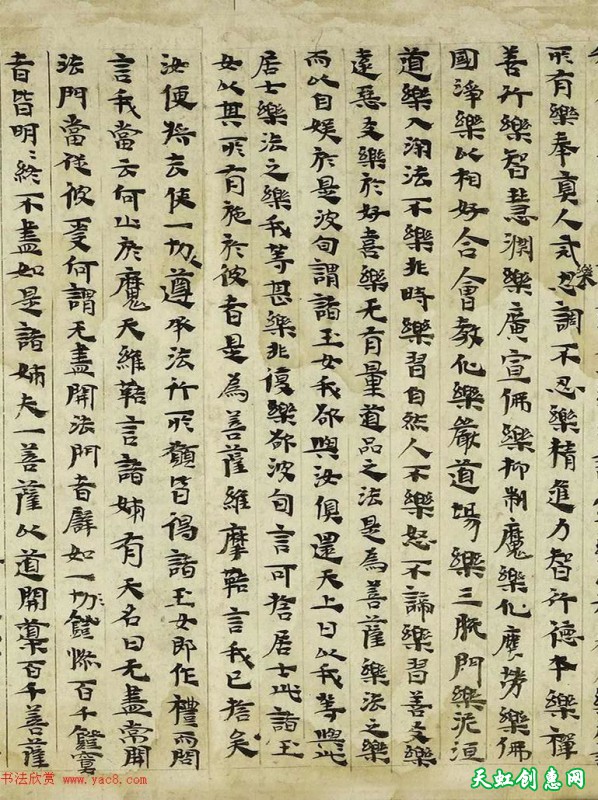 所有樂奉真人或忍調不忍樂精進力智行德本樂禪
善行樂智慧渊樂廣宣佛樂抑制魔樂化塵勞樂佛
國淨樂以相好合會教化樂嚴道場樂三脫門樂泥洹
道樂入深法不樂非時樂習自然人不樂怒不諦樂習善友樂
遠惡友樂於好喜樂无有量道品之法是為菩薩樂法之樂
而以自娛於是波旬謂諸玉女我欲與汝俱還天上曰以我等與此
居士樂法之樂我等甚樂非復樂欲波旬言可捨居士此諸玉
女以其所有施於彼者是為菩薩維摩詰言我已捨矣
汝便將去使一切遵承法行所願皆得諸玉女即作禮而問
言我當云何止於魔天維摩詰言諸姊有天名曰无盡常開
法門當從彼受何謂无盡開法門者譬如一切燈燃百千燈冥
者皆明〻終不盡如是諸姊夫一菩薩以道開導百千菩薩
樂
书法欣赏 www.yac8.com
天虹创惠网